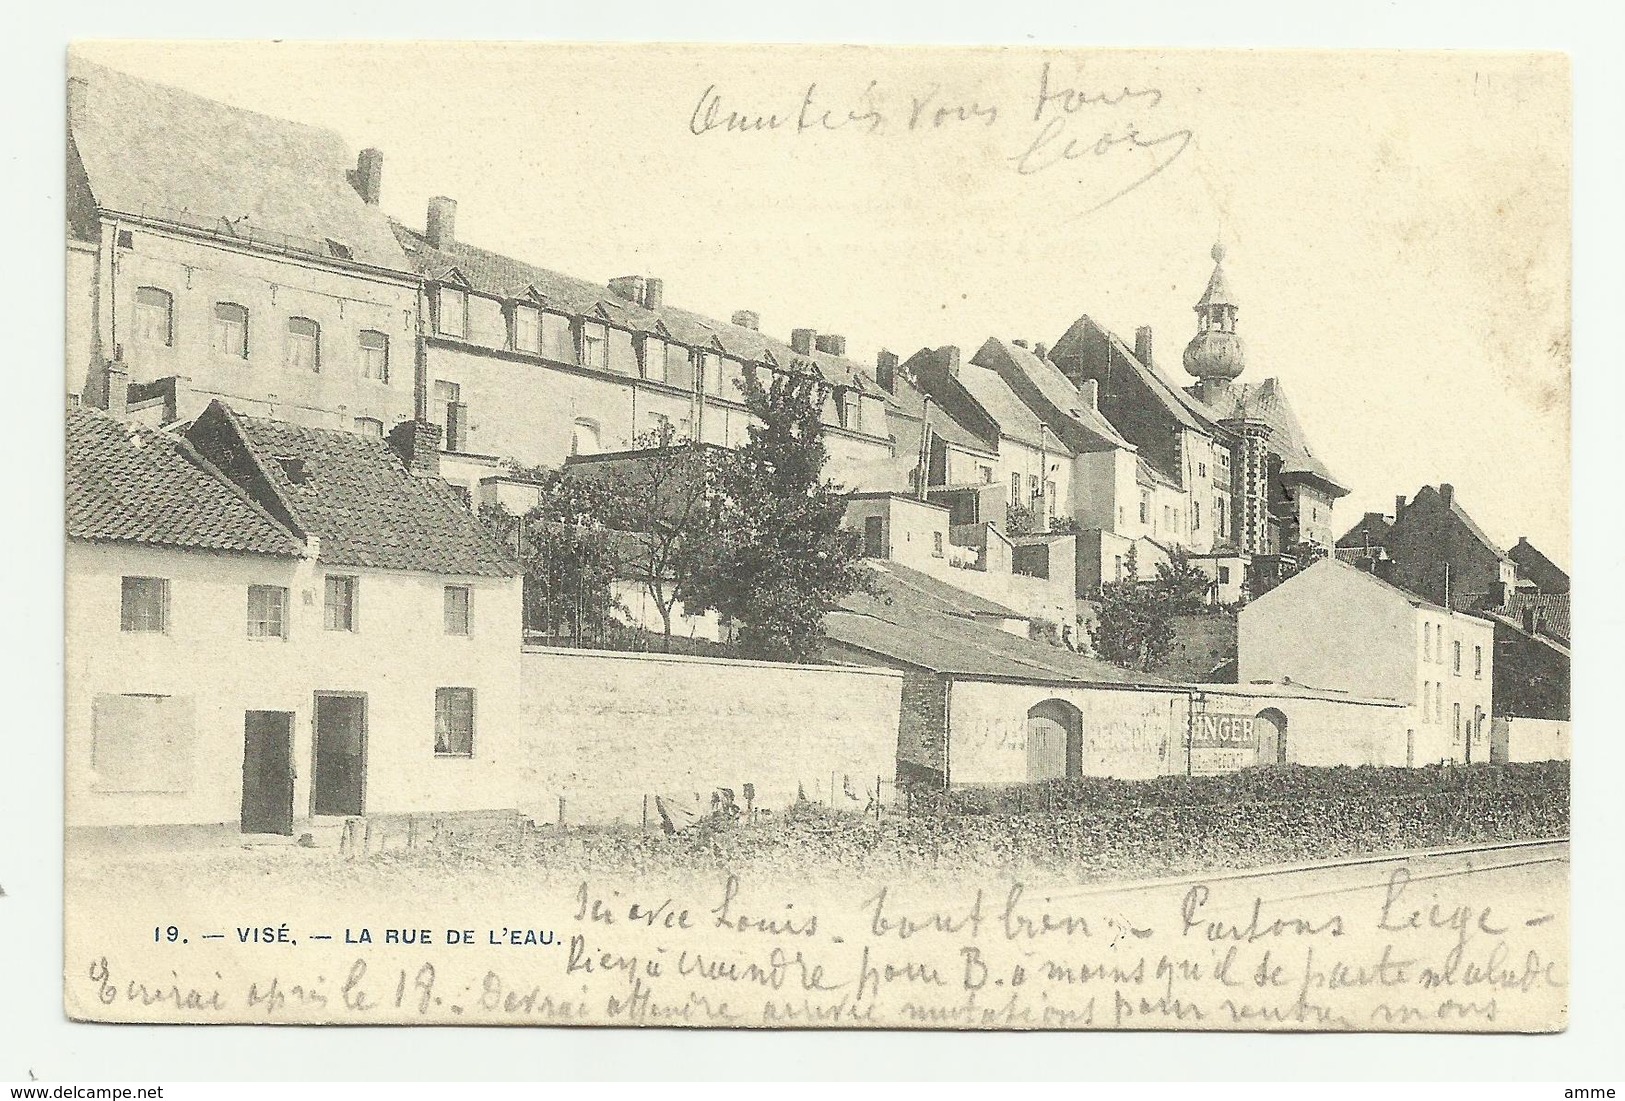 Amitiés vous tous
SINGER
Ici avec Louis. tout bien. - Partons Liège -
19. — VISÉ. — LA RUE DE L'EAU.
Rien à craindre pour B. à moins qu'il se porte malade
Ecrirai après le 18. - Devrai attendre arrivée mutations pour rentrer mons
delcampe.net
amme